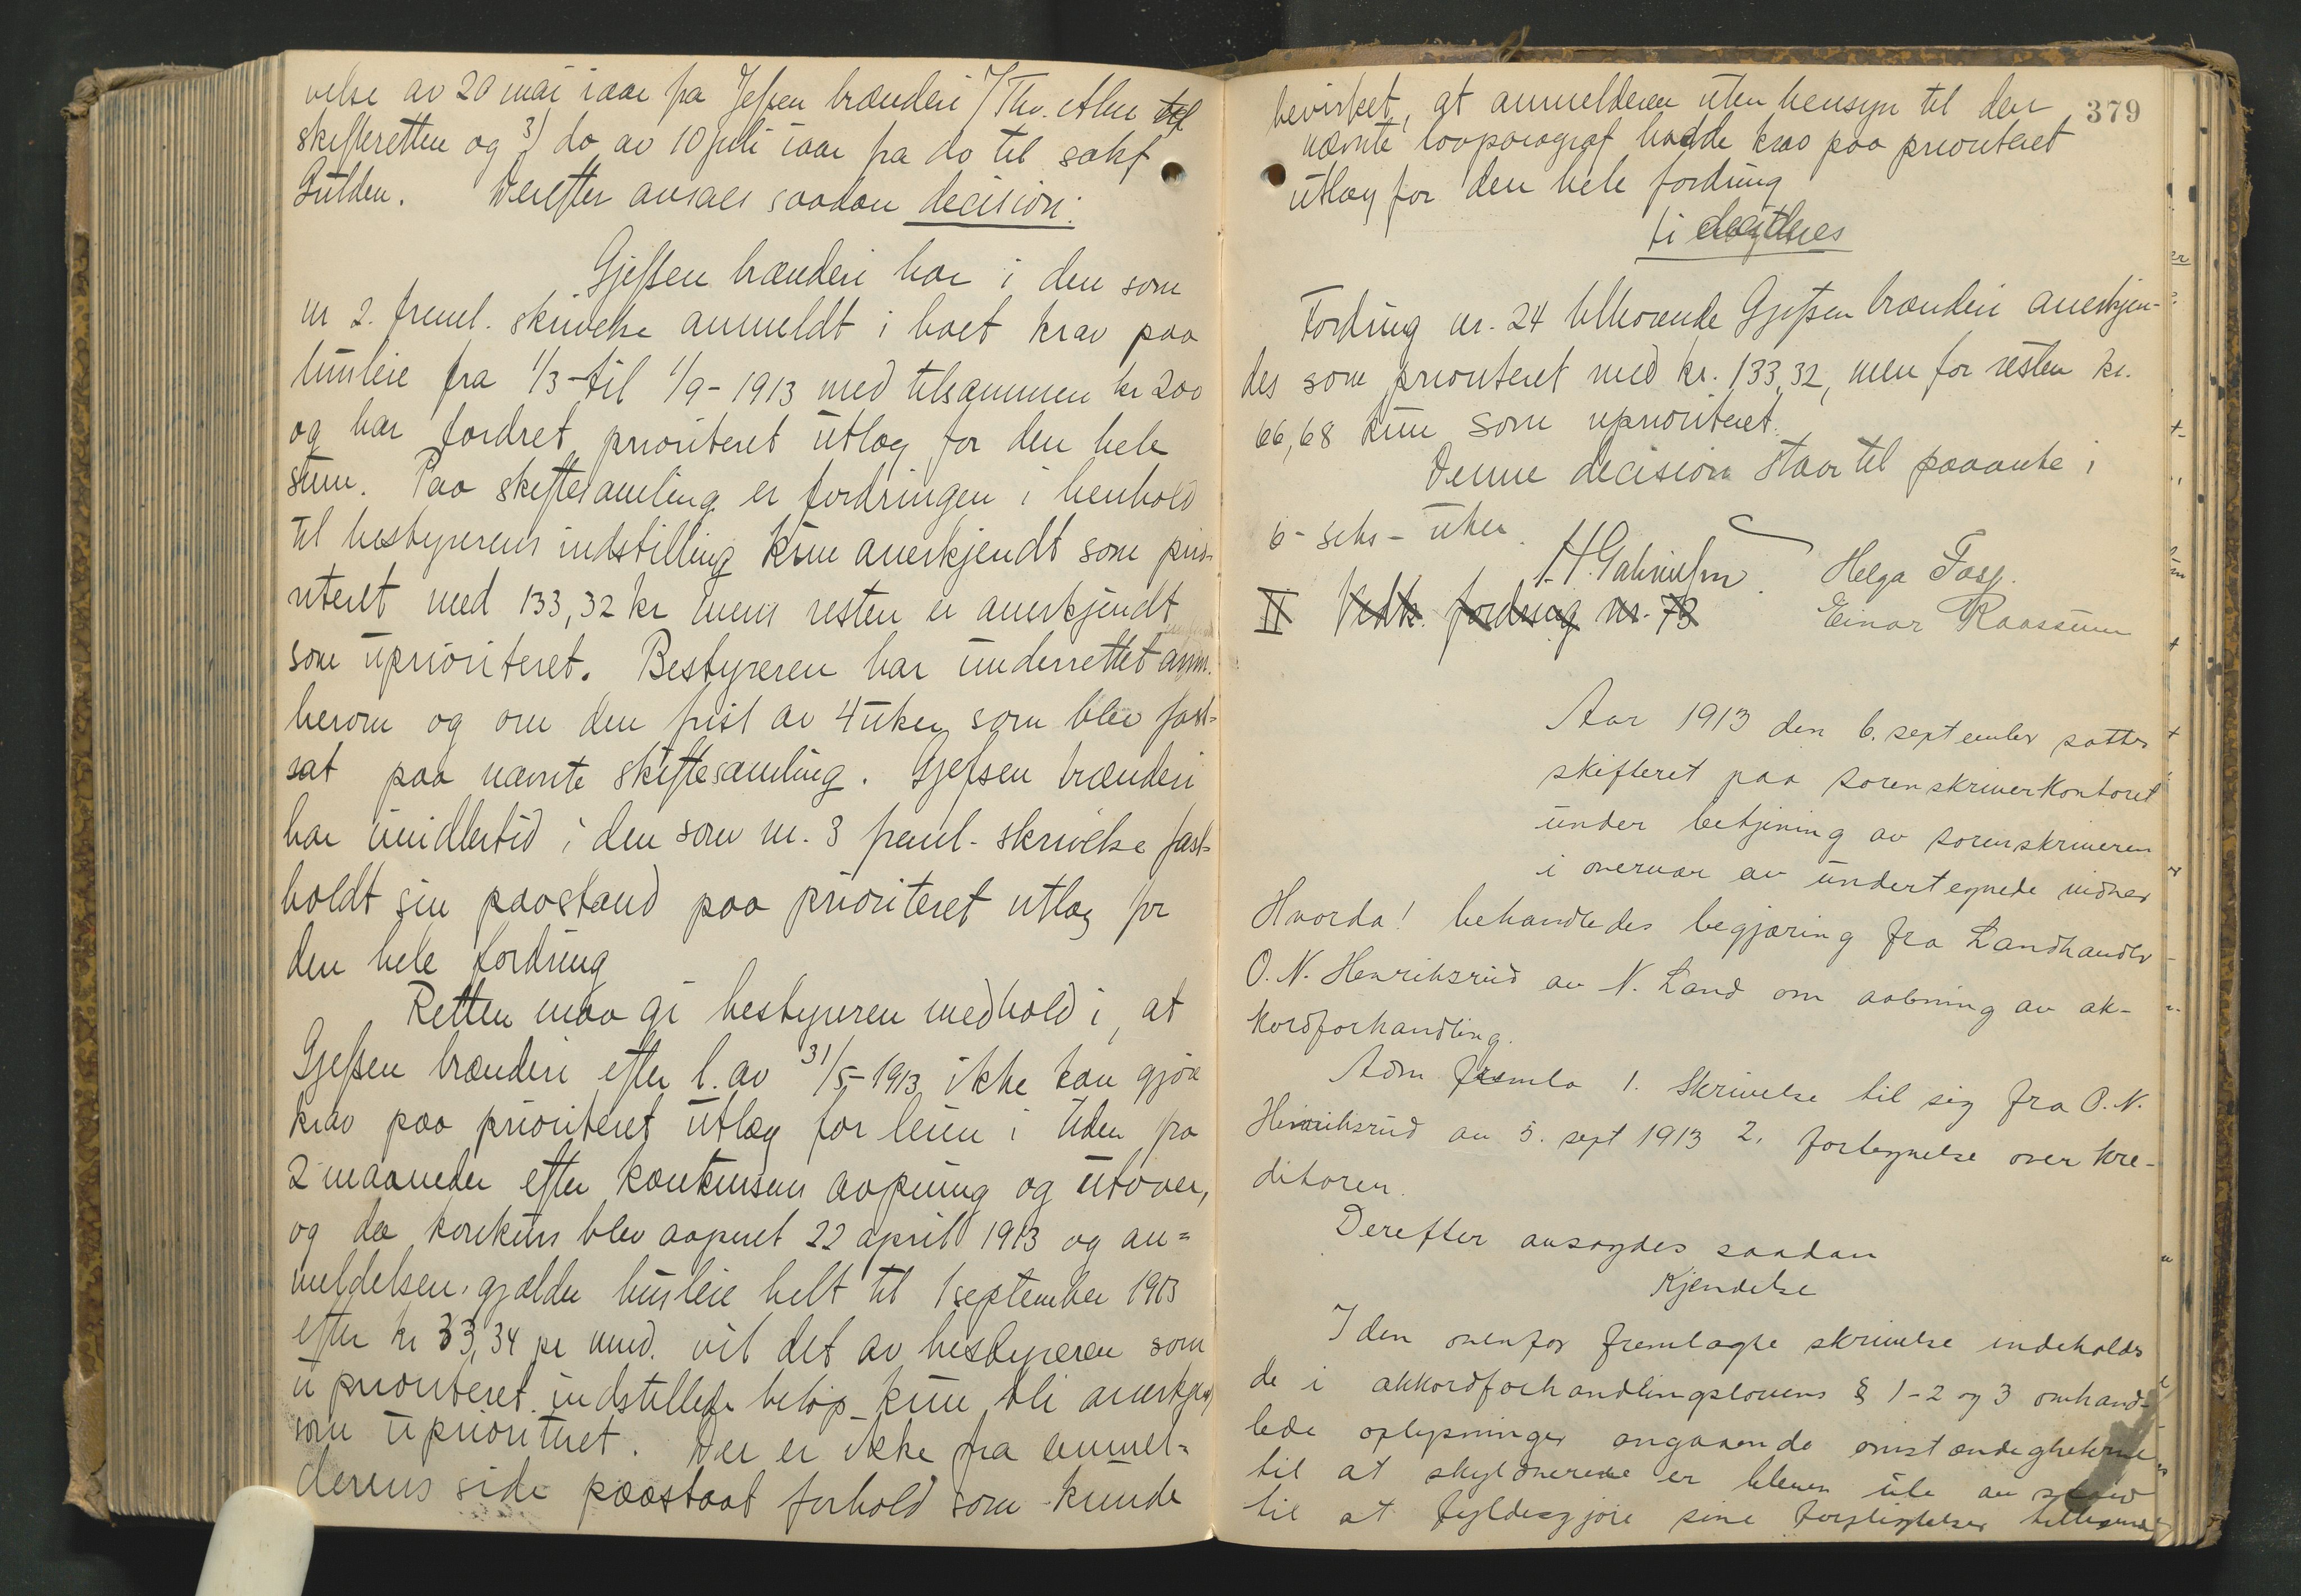 velse av 20 mai iaar fra Jefsen brænderi v/ Thv. Alm til
skifteretten og 3) do av 10 juli iaar fra do til sakf
Gulden. Derefter avsaes saadan decision:
Gjefsen brænderi har i den som
nr 2. freml. skrivelse anmeldt i boet krav paa
husleie fra 1/3 - til 1/9 - 1913 med tilsammen kr 200
og har fordret prioritert utlæg for den hele
sum. Paa skiftesamling er fordringen i henhold
til bestyrerens indstilling kun anerkjendt som prio-
riteret med 133,32 kr mens resten er anerkjendt
som uprioriteret. Bestyreren har underrettet anm.
herom og om den frist av 4 uker som blev fast-
sat paa nævnte skiftesamling. Gjefsen brænderi
har imidlertid i den som nr. 3 freml. skrivelse fast-
holdt sin paastand paa prioriteret utlæg for
den hele fordring
Retten maa gi bestyreren medhold i, at
Gjefsen brænderi efter l. av 31/5 - 1913 ikke kan gjøre
krav paa prioriteret utlæg for leien i tiden fra
2 maaneder efter konkursens aapning og utover,
og da konkurs blev aapnet 22 april 1913 og an-
meldelsen gjælder husleie helt til 1 september 1913
efter kr 33,34 pr mnd. vil det av bestyreren som
uprioriteret indstillede beløp kun bli anerkjendt
som uprioriteret. Der er ikke fra anmel-
derens side paastaat forhold som kunde
379
bevirket, at anmelderen uten hensyn til den
nævnte lovparagraf hadde krav paa prioriteret
utlæg for den hele fordring
ti
Fordring nr. 24 tilhørende Gjefsen brænderi anerkjen-
des som prioriteret med kr. 133,32, men for resten kr.
66,68 kun som uprioriteret.
Denne decision staar til paaanke i
6 - seks - uker.
Helga
Einar Raassum
II Vedk. fordring nr. 73
Aar 1913 den 6. september sattes
skifteret paa sorenskriverkontoret
under betjening av sorenskriveren
i overvær av undertegnede vidner
Hvorda! behandledes begjæring fra Landhandler
O. N. Henriksrud av N. Land om aabning av ak-
kordforhandling.
Adm fremla 1. Skrivelse til sig fra O. N.
Henriksrud av 5. sept 1913 2. fortegnelse over kre-
ditorer.
Derefter avsagdes saadan
Kjendelse
I den ovenfor fremlagte skrivelse indeholdes
de i akkordforhandlingslovens § 1-2 og 3 omhand-
lede oplysninger angaaende omstændigheterne
til at skyldneren er bleven ute av stand
til at fyldesgjøre sine forpligtelser